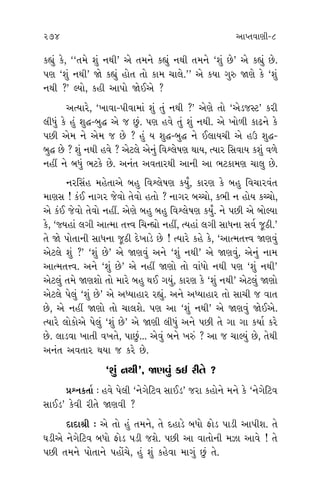 ૨૭૪ આપ્તવાણી-૮
કહ્યું કે, ‘‘તમે શું નથી’ એ તમને કહ્યું નથી તમને ‘શું છે’ એ કહ્યું છે.
પણ ‘શું નથી’ જો કહ્યું હોત તો કામ ચાલે.’’ એ કયા ગુરુ જાણે કે ‘શું
નથી ?’ લ્યો, કહી આપો જોઈએ ?
અત્યારે, ‘ખાવા-પીવામાં શું તું નથી ?’ એણે તો ‘એડજસ્ટ’ કરી
લીધું કે હું શુદ્ધ-બુદ્ધ એ જ છું. પણ હવે તું શું નથી. એ ખોળી કાઢને કે
પછી એમ ને એમ જ છે ? હું ય શુદ્ધ-બુદ્ધ ને ઈલાયચી એ હઉ શુદ્ધ-
બુદ્ધ છે ? શું નથી હવે ? એટલે એનું વિશ્લેષણ થાય, ત્યાર સિવાય કશું વળે
નહીં ને બધું ભટકે છે. અનંત અવતારથી આની આ ભટકામણ ચાલુ છે.
નરસિંહ મહેતાએ બહુ વિશ્લેષણ કર્યું, કારણ કે બહુ વિચારવંત
માણસ ! કંઈ નાગર જેવો તેવો હતો ? નાગર બચ્ચો, કભી ન હોય કચ્ચો,
એ કંઈ જેવો તેવો નહીં. એણે બહુ બહુ વિશ્લેષણ કર્યું. ને પછી એ બોલ્યા
કે, ‘જ્યહાં લગી આત્મા તત્ત્વ ચિન્હ્યો નહીં, ત્યહાં લગી સાધના સર્વ જૂઠી.’
તે જો પોતાની સાધના જૂઠી દેખાડે છે ! ત્યારે કહે કે, ‘આત્મતત્ત્વ જાણવું
એટલે શું ?’ ‘શું છે’ એ જાણવું અને ‘શું નથી’ એ જાણવું, એનું નામ
આત્મતત્ત્વ. અને ‘શું છે’ એ નહીં જાણો તો વાંધો નથી પણ ‘શું નથી’
એટલું તમે જાણશો તો મારે બહુ થઈ ગયું, કારણ કે ‘શું નથી’ એટલું જાણો
એટલે પેલું ‘શું છે’ એ અધ્યાહાર રહ્યું. અને અધ્યાહાર તો સાચી જ વાત
છે, એ નહીં જાણો તો ચાલશે. પણ આ ‘શું નથી’ એ જાણવું જોઈએ.
ત્યારે લોકોએ પેલું ‘શું છે’ એ જાણી લીધું અને પછી તે ગા ગા કર્યા કરે
છે. લાડવા ખાતી વખતે, પાછું... એવું બને ખરું ? આ જ ચાલ્યું છે, તેથી
અનંત અવતાર થયા જ કરે છે.
‘શું નથી’, જાણવું કઈ રીતે ?
પ્રશ્નકર્તા : હવે પેલી ‘નેગેટિવ સાઈડ’ જરા કહોને મને કે ‘નેગેટિવ
સાઈડ’ કેવી રીતે જાણવી ?
દાદાશ્રી : એ તો હું તમને, તે દહાડે બધો ફોડ પાડી આપીશ. તે
ઘડીએ નેગેટિવ બધો ફોડ પડી જશે. પછી આ વાતોની મઝા આવે ! તે
પછી તમને પોતાને પહોંચે, હું શું કહેવા માગું છું તે.